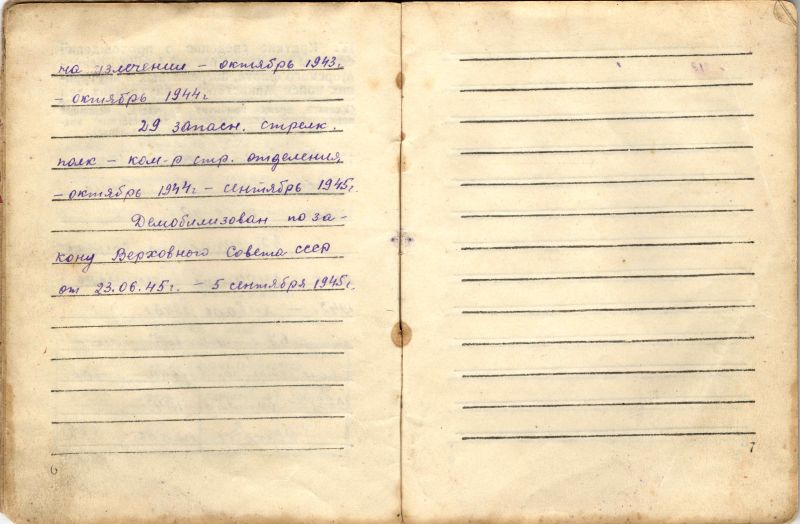 на излечении – октябрь 1943г.
– октябрь 1944г.
29 запасн. стрелк.
полк – ком-р стр. отделения
– октябрь 1944г. – сентябрь 1945г.
Демобилизован по за-
кону Верховного Совета СССР
от 23.06.45г. – 5 сентября 1945г.
6
7